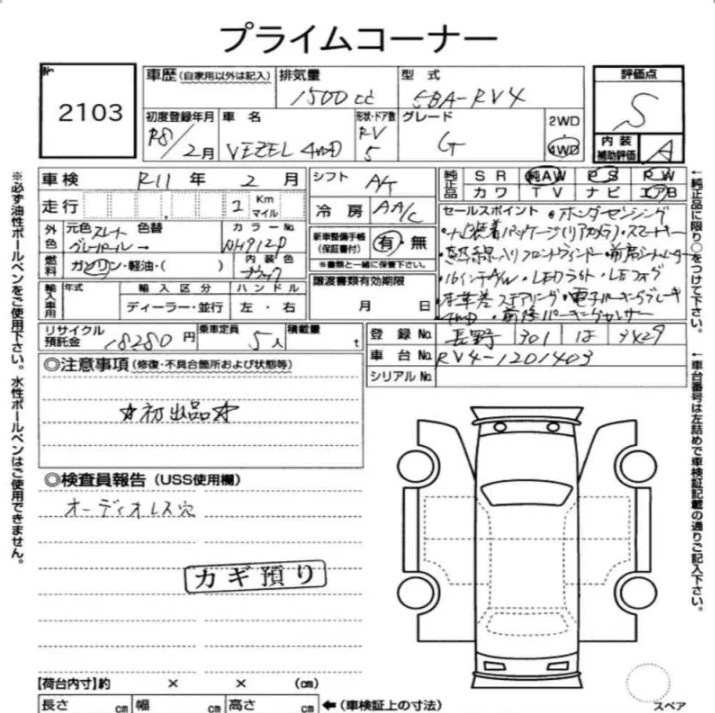 プライムコーナー
№ 2103
車歴 (自家用以外は記入) 排気量 1500cc 型式 5BA-RV4 評価点 S
初度登録年月 R8/2月 車名 VEZEL 4WD 形状・ドア数 RV 5 グレード G 2WD 4WD 内装補助評価 A
車検 R11年 2月 シフト A/T 純正品 SR 純AW PS PW
カワ TV ナビ エアB
走行 2 Km マイル 冷房 AA/C
外色 元色 色替 カラーNo. NH912P
燃料 ガソリン・軽油・( ) 内装色 ブラック
新車整備手帳(保証書付) 有・無
※書類と一緒に保管下さい。
輸入車用 年式 輸入区分 ハンドル
ディーラー・並行 左・右
譲渡書類有効期限
月 日
セールスポイント ・ホンダセンシング
・ナビ装着パッケージ(リアカメラ)・スマートキー
・熱線入りフロントウインドー・前席シートヒーター
・16インチA/W・LEDライト・LEDフォグ
・本革巻ステアリング・電子パーキングブレーキ
・4WD・前後パーキングセンサー
リサイクル預託金 18280円 乗車定員 5人 積載量 t
登録No. 長野 301 ほ 3429
車台No. RV4-1201403
シリアルNo.
◎注意事項(修復・不具合箇所および状態等)
☆初出品☆
◎検査員報告(USS使用欄)
オーディオレス穴
カギ預り
【荷台内寸】約 × × (cm)
長さ cm 幅 cm 高さ cm ←(車検証上の寸法)
スペア
※必ず油性ボールペンをご使用下さい。水性ボールペンはご使用できません。
←純正品に限り○をつけて下さい。
←車台番号は左詰めで車検証記載の通りご記入下さい。